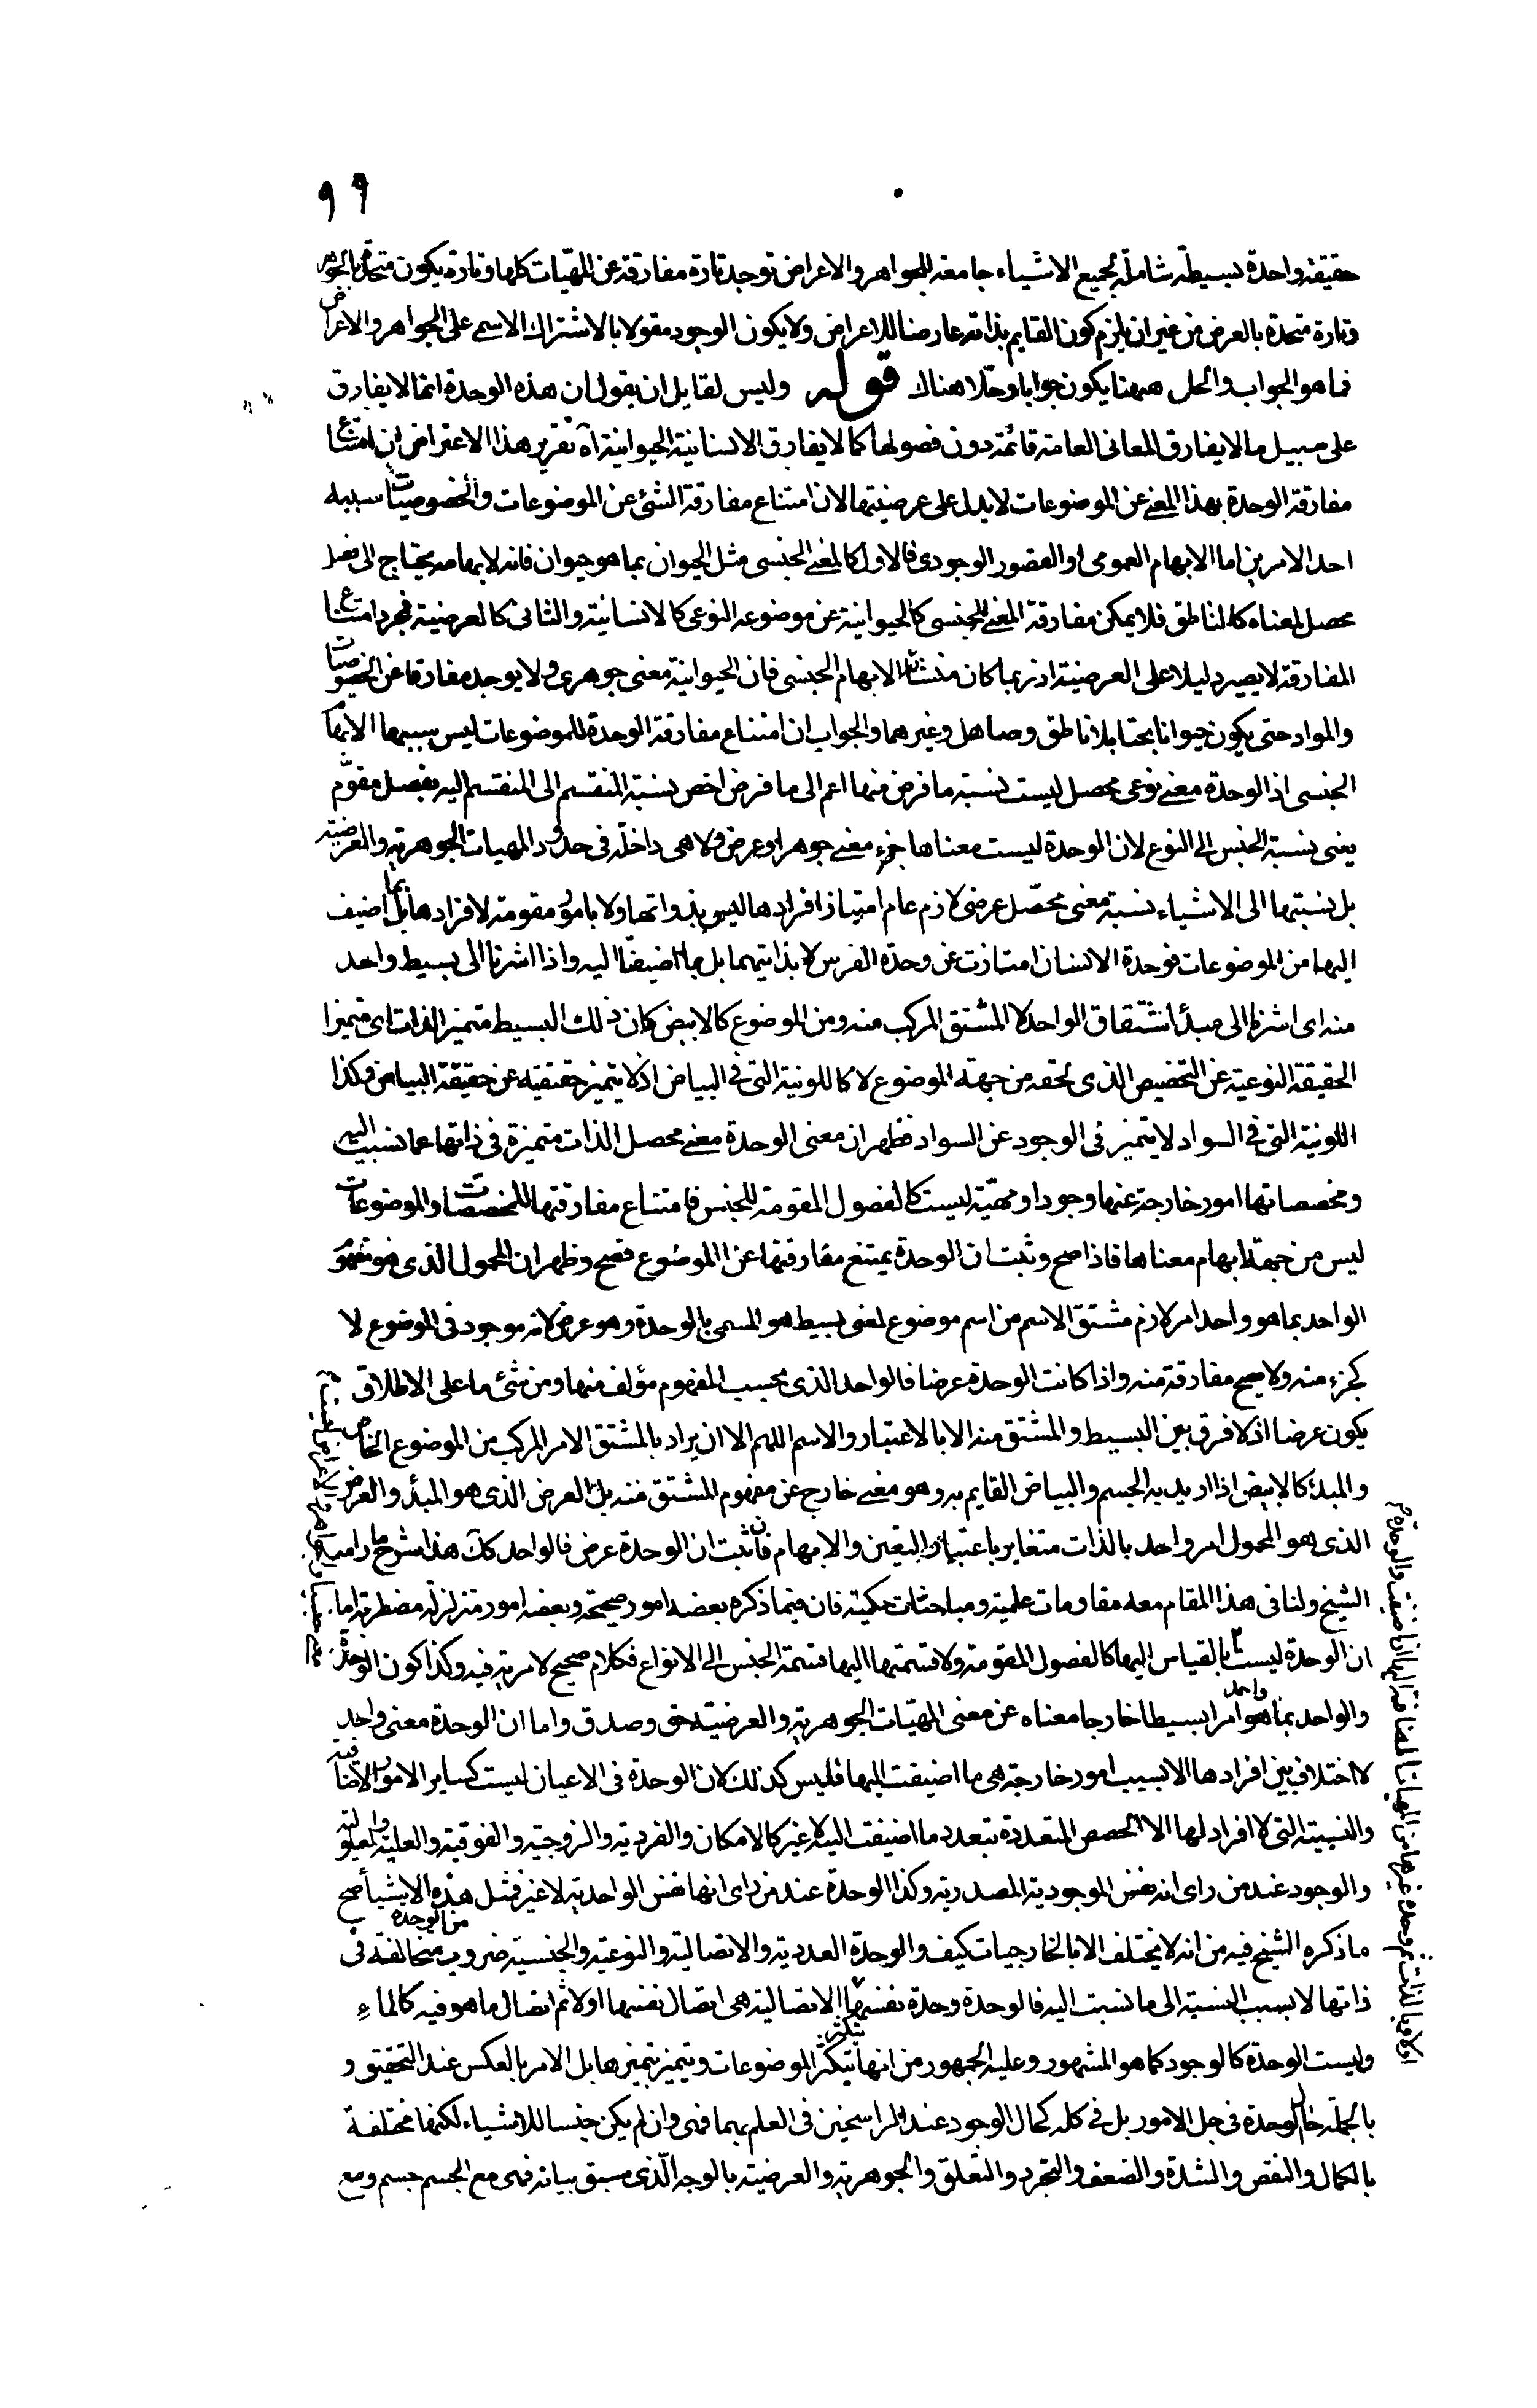 ٩٩
حقيقة واحدة بسيطة شاملة لجميع الاشياء جامعة للجواهر والاعراض توجد تارة مفارقة عن المهيّات كلها وتارة يكون متحدة بالجواهر
وتارة متحدة بالعرض من غير ان يلزم كون القايم بذاته عارضا للاعراض ولا يكون الوجود مقولا بالاشتراك الاسمى على الجواهر والاعراض
فما هو الجواب والحل ههنا يكون جوابا وحلا هناك قوله وليس لقايل ان يقول ان هذه الوحدة انما لا يفارق
على سبيل ما لا يفارق المعانى العامة قائمة دون فصولها كما لا يفارق الانسانية الحيوانية آه تقرير هذا الاعتراض ان امتناع
مفارقة الوحدة بهذا المعنى عن الموضوعات لا يدل على عرضيتها لان امتناع مفارقة الشئ عن الموضوعات والخصوصيات سببه
احد الامرين اما الابهام العمومى او القصور الوجودى فالاول كالمعنى الجنسى مثل الحيوان بما هو حيوان فانه لابهامه يحتاج الى فصل
محصل لمعناه كالناطق فلا يمكن مفارقة المعنى الجنسى كالحيوانية عن موضوعه النوعى كالانسانية والثانى كالعرضية فمجرد امتناع
المفارقة لا يصير دليلا على العرضية اذ ربما كان منشائه الابهام الجنسى فان الحيوانية معنى جوهرى ولا يوجد مفارقا عن الخصوصيات
والمواد حتى يكون حيوانا بحتا بلا ناطق وصاهل وغيرهما والجواب ان امتناع مفارقة الوحدة للموضوعات ليس بسببها الابهام
الجنسى اذ الوحدة معنى نوعى محصل ليست نسبة ما فرض منها اعم الى ما فرض اخص نسبة المنقسم الى المنقسم اليه بفصل مقوّم
يعنى نسبة الجنس الى النوع لان الوحدة ليست معناها جزء معنى جوهر او عرض ولا هى داخلة فى حدود المهيات الجوهرية والعرضية
بل نسبتها الى الاشياء نسبة معنى محصّل عرضى لازم عام امتياز افرادها ليس بذواتها ولا بامور مقومة لافرادها بل بما اضيف
اليها من الموضوعات فوحدة الانسان امتازت عن وحدة الفرس لا بذاتيهما بل بما اضيفتا اليه واذا اشرنا الى بسيط واحد
منه اى اشرنا الى مبدأ اشتقاق الواحد لا المشتق المركب منه ومن الموضوع كالابيض كان ذلك البسيط متميز الذات اى متميزا
الحقيقة النوعية عن التخصيص الذى لحقه من جهة الموضوع لا كاللونية التى فى البياض اذ لا يتميز حقيقته عن حقيقة البياض وكذا
اللونية التى فى السواد لا يتميز فى الوجود عن السواد فظهر ان معنى الوحدة معنى محصل الذات متميزة فى ذاتها عما نسبت اليه
ومخصصاتها امور خارجة عنها وجودا ومهيّة ليست كالفصول المقومة للجنس فامتناع مفارقتها للمخصصات والموضوعات
ليس من جهة ابهام معناها فاذا صح وثبت ان الوحدة يمتنع مفارقتها عن الموضوع فصح وظهر ان المحمول الذى هو مفهوم
الواحد بما هو واحد امر لازم مشتق الاسم من اسم موضوع لمعنى بسيط هو المسمى بالوحدة وهو عرض لانه موجود فى الموضوع لا
كجزء منه ولا يصح مفارقة منه واذا كانت الوحدة عرضا فالواحد الذى بحسب المفهوم مؤلف منها ومن شئ ما على الاطلاق
يكون عرضا اذ لا فرق بين البسيط والمشتق منه الا بالاعتبار والاسم اللهم الا ان يراد بالمشتق الامر المركب من الموضوع الخاص
والمبدأ كالابيض اذا اريد به الجسم والبياض القايم به وهو معنى خارج عن مفهوم المشتق منه بل العرض الذى هو المبدأ والعرضى
الذى هو المحمول امر واحد بالذات متغاير باعتبار التعين والابهام فان ثبت ان الوحدة عرض فالواحد كك هذا شرح ما رامه
الشيخ ولنا فى هذا المقام معه مقاومات علمية ومباحثات حكمية فان فيما ذكره بعضه امور صحيحة وبعضه امور متزلزلة مضطربة اما
ان الوحدة ليست بالقياس اليها كالفصول المقومة ولا قسمتها اليها قسمة الجنس الى الانواع فكلام صحيح لا مرية فيه وكذا كون الوحدة
والواحد بما هو واحد امرا بسيطا خارجا معناه عن معنى المهيّات الجوهرية والعرضية حق وصدق واما ان الوحدة معنى واحد
لا اختلاف بين افرادها الا بسبب امور خارجة هى ما اضيفت اليها فليس كذلك لان الوحدة فى الاعيان ليست كساير الامور الاضافية
والنسبية التى لا افراد لها الا الحصص المتعددة بتعدد ما اضيفت اليه لا غير كالامكان والفردية والزوجية والفوقية والعلية والمعلولية
والوجود عند من راى انه نفس الموجودية المصدرية وكذا الوحدة عند من راى انها نفس الواحدية لا غير فمثل هذه الاشيأ صح
ما ذكره الشيخ فيه من انه لا يختلف الا بالخارجيات كيف والوحدة العددية والاتصالية والنوعية والجنسية ضروب من الوحدة متخالفة فى
ذاتها لا بسبب النسبة الى ما نسبت اليه فالوحدة وحدة بنفسها الاتصالية هى اتصال بنفسها اولا ثم اتصال ما هو فيه كالماء
وليست الوحدة كالوجود كما هو المشهور وعليه الجمهور من انها يتكثر بتكثر الموضوعات ويتميز بتميزها بل الامر بالعكس عند التحقيق و
بالجملة حال الوحدة فى جل الامور بل فى كله كحال الوجود عند الراسخين فى العلم بهما فهى وان لم يكن جنسا للاشياء لكنها مختلفة
بالكمال والنقص والشدة والضعف والتجرد والتعلق والجوهرية والعرضية بالوجه الّذى سبق بيانه فهى مع الجسم جسم ومع